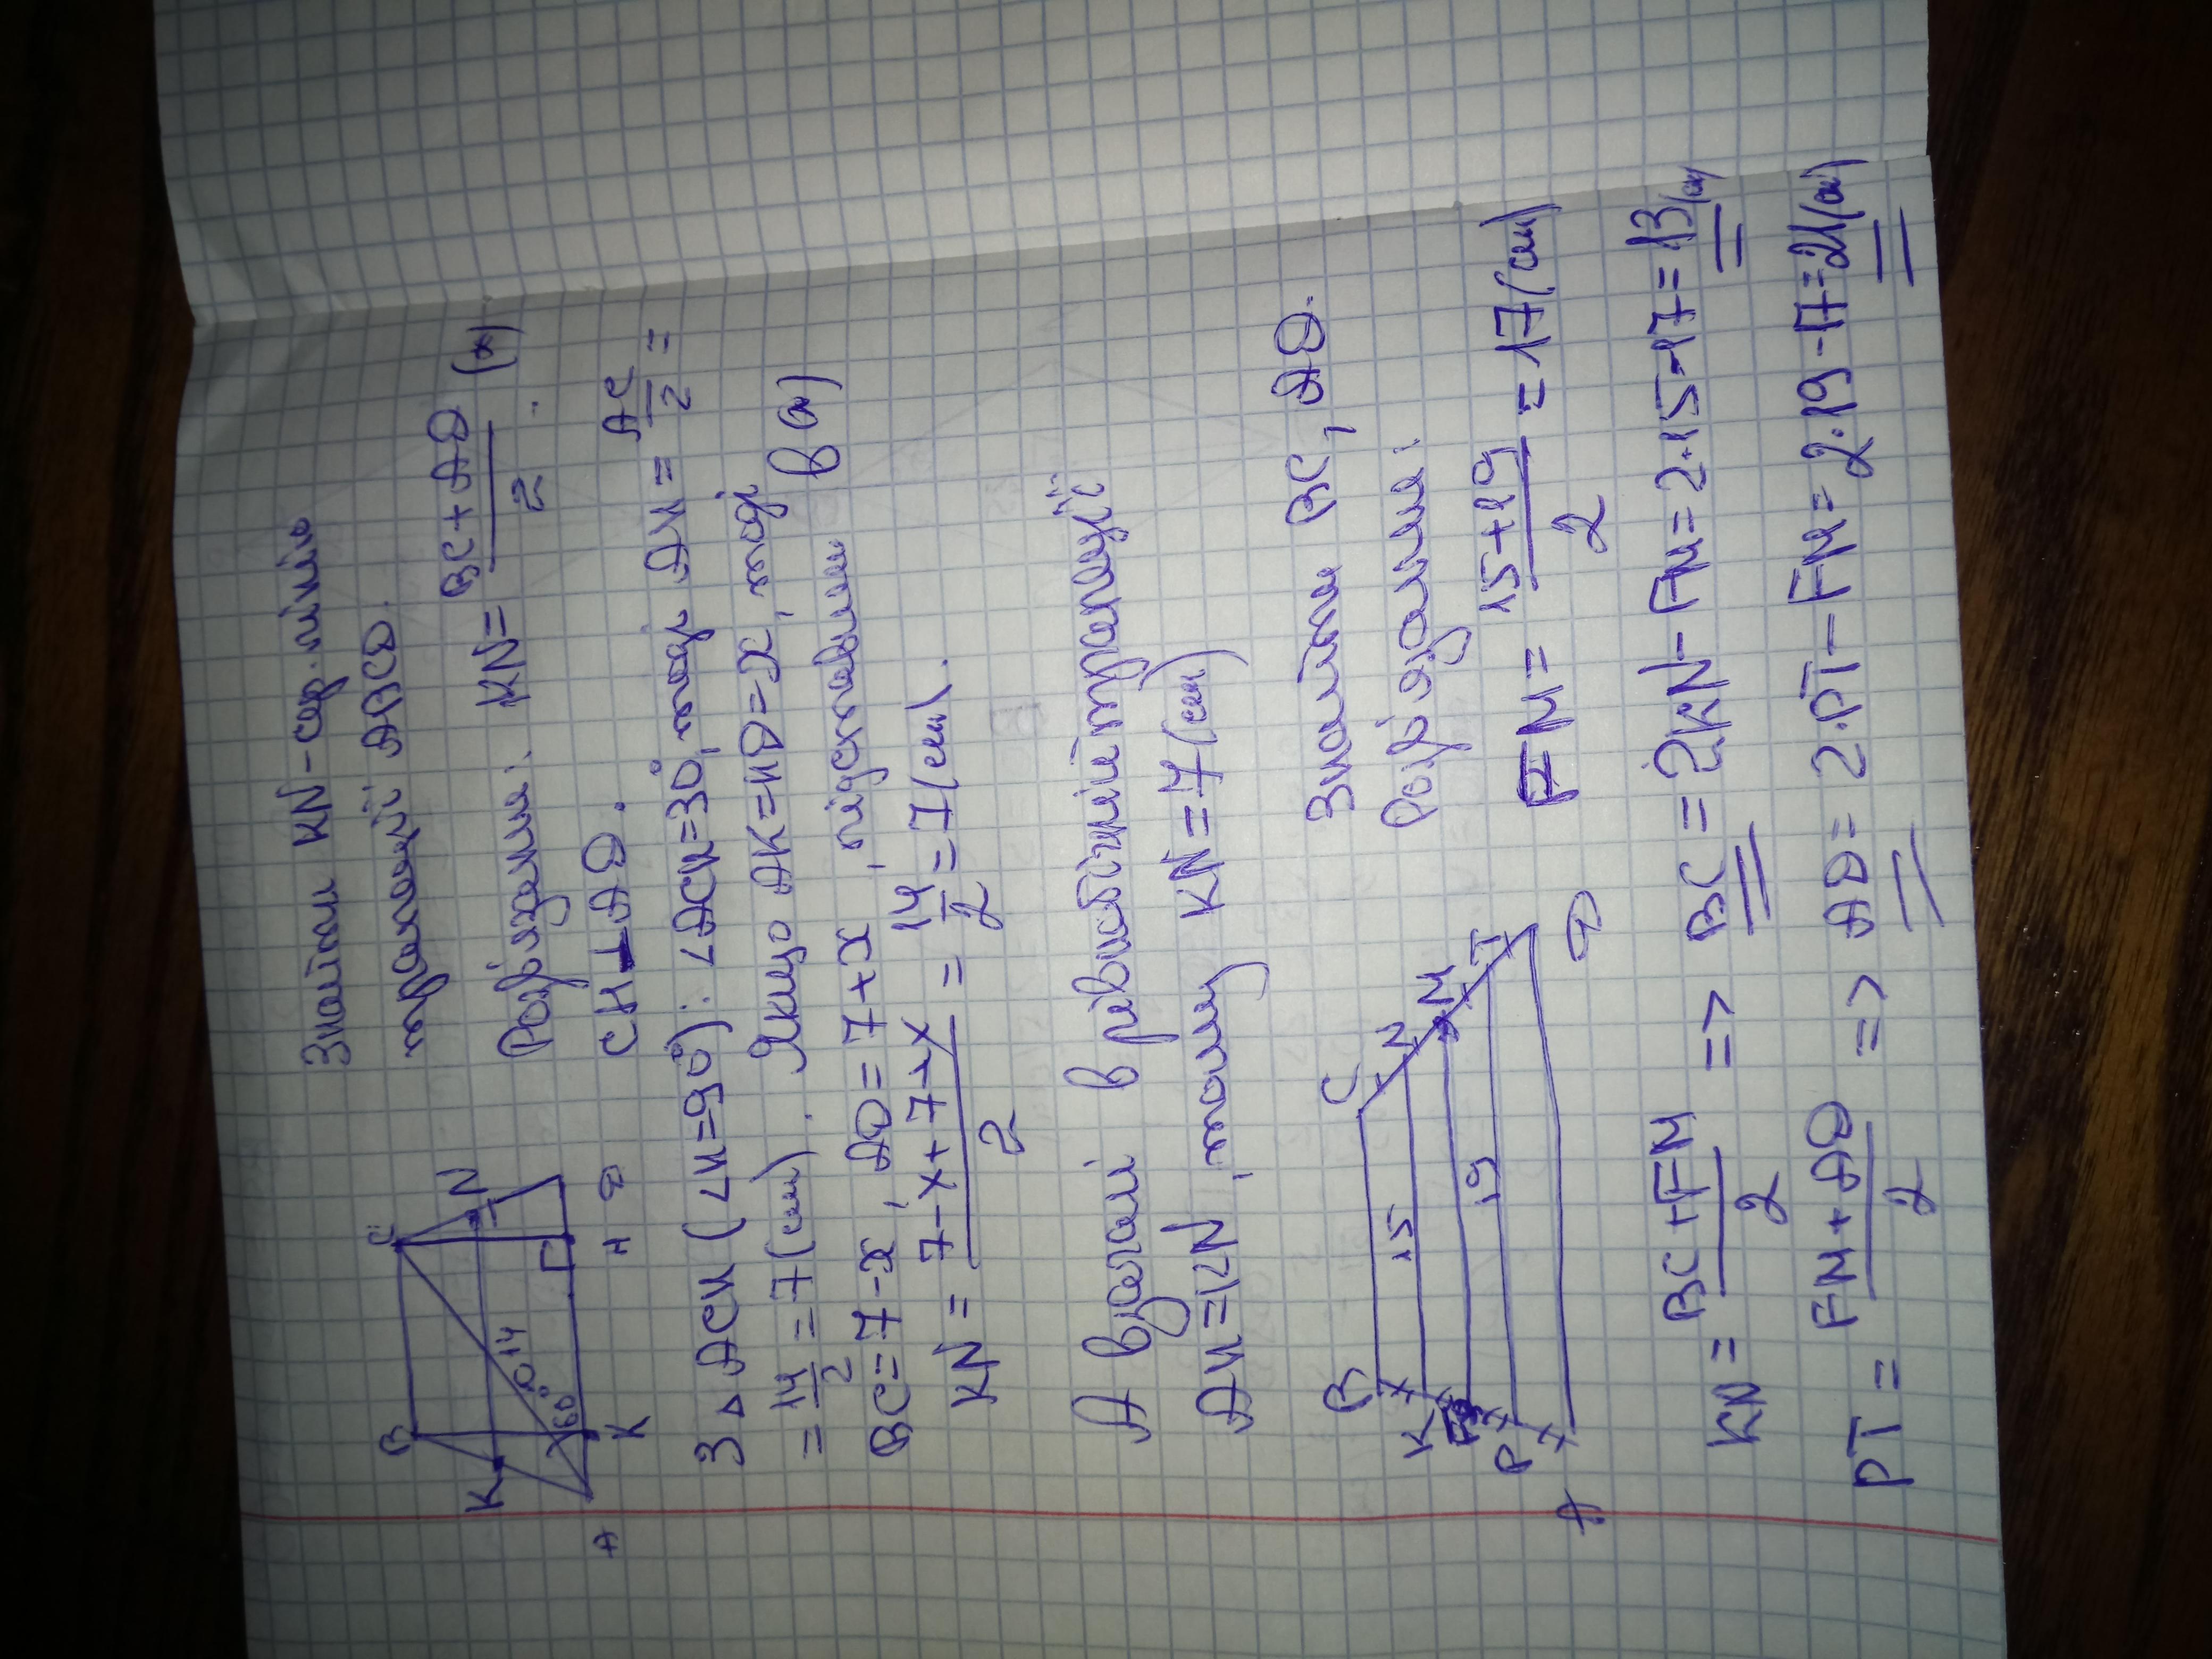 Знайти KN-сер. лінію
трапеції ABCD.
Розв'язання: KN = (BC + AD)/2 (*)
CH⊥AD.
B
C
K
N
O
14
60°
A
K
H
D
З △ACH (∠H=90°): ∠ACH=30°, тоді AH = AC/2 =
= 14/2 = 7(см). Якщо AK=HD=x, тоді
BC=7-x, AD=7+x, підставити в (*)
KN = (7-x+7+x)/2 = 14/2 = 7(см).
А взагалі в рівнобічній трапеції
AH=KN, тому KN=7(см)
B
C
K
15
N
F
M
P
19
T
A
D
Знайти BC, AD.
Розв'язання:
FM = (15+19)/2 = 17(см)
KN = (BC+FM)/2 => BC = 2KN - FM = 2·15-17=13(см)
PT = (FM+AD)/2 => AD = 2·PT - FM = 2·19-17=21(см)